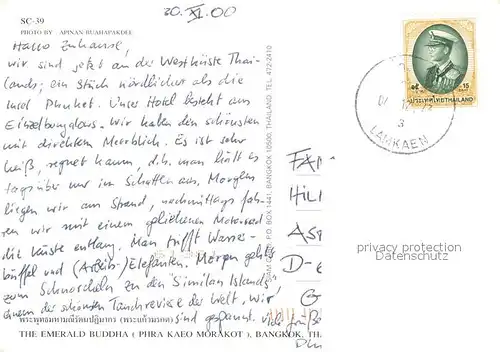 SC-39
20. XI. 00
PHOTO BY : APINAN BUAHAPAKDEE
Hallo Zuhause!,
wir sind jetzt an der Westküste Thai-
lands; ein Stück nördlicher als die
Insel Phuket. Unser Hotel besteht aus
Einzelbungalows. Wir haben den schönsten
mit direktem Meerblick. Es ist sehr
heiß, regnet kaum, d.h. man hält es
tagsüber nur im Schatten aus. Morgens
liegen wir am Strand, nachmittags fah-
ren wir mit einem geliehenen Motorrad
die Küste entlang. Man trifft Wasser-
büffel und (Arbeits-)Elefanten. Morgen geht's
zum Schnorcheln zu den "Similan Islands",
einem der schönsten Tauchreviere der Welt, wir
sind gespannt. viele Grüße
พระพุทธมหามณีรัตนปฏิมากร (พระแก้วมรกต)
THE EMERALD BUDDHA ( PHRA KAEO MORAKOT ), BANGKOK, TH
P.O. BOX 1441, BANGKOK 10500, THAILAND TEL. 472-2410
ประเทศไทย THAILAND
15
LAMKAEN
3
FA
HIL
AS
D-
G
privacy protection
Datenschutz